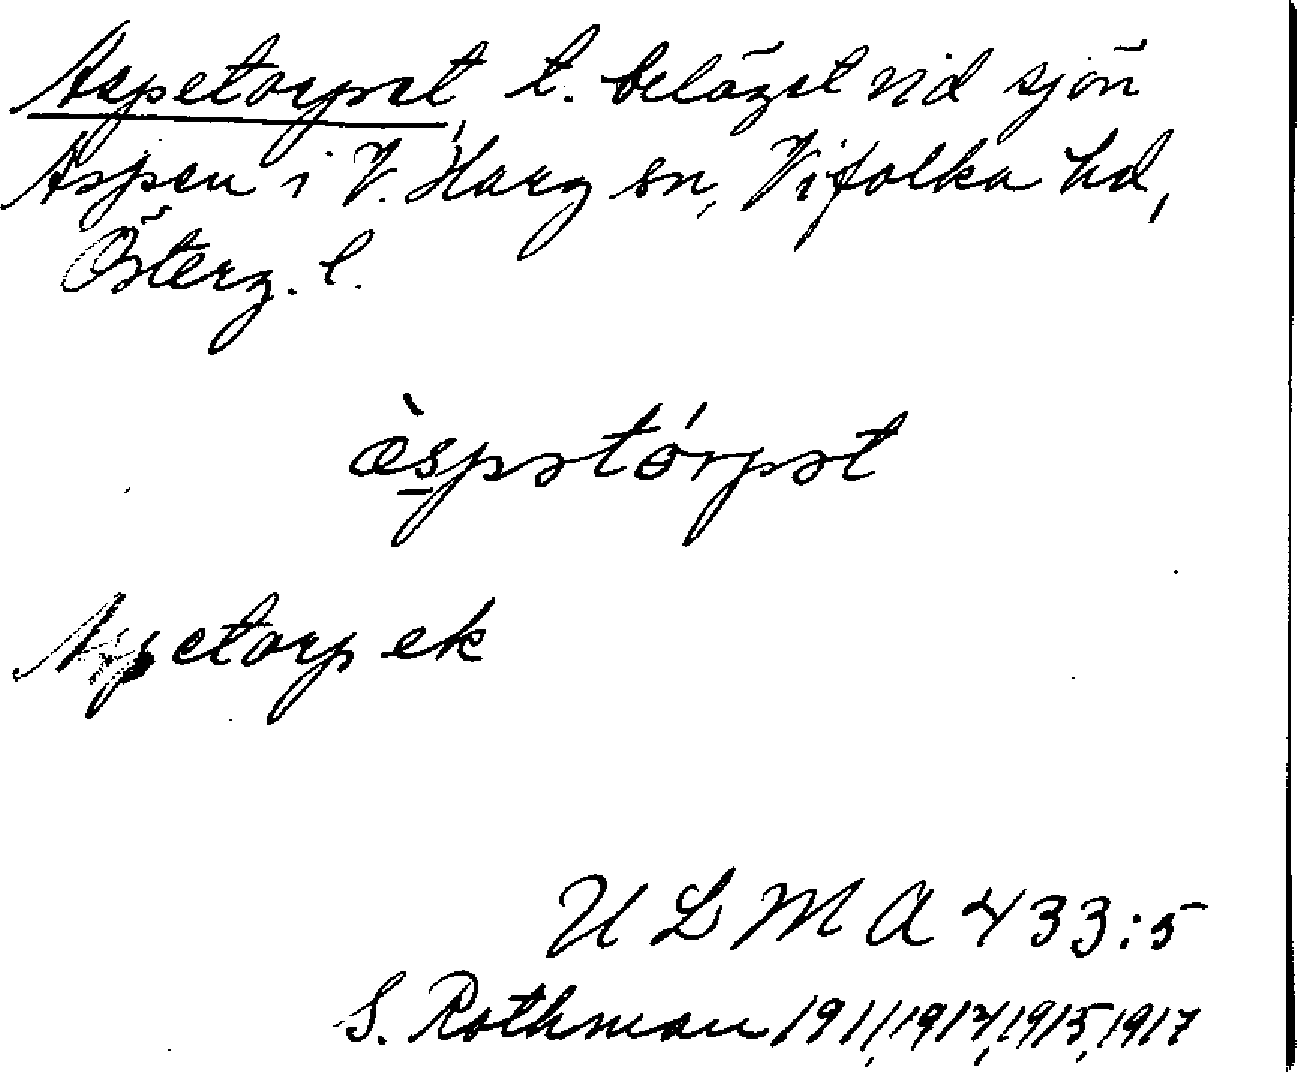 Aspetorpet, t. beläget vid sjön
Aspen i V. Harg sn, Vifolka hd,
Österg. l.
àspətórpət
Aspetorp ek
U L M A 433:5
S. Rothman 1911, 1912, 1915, 1917